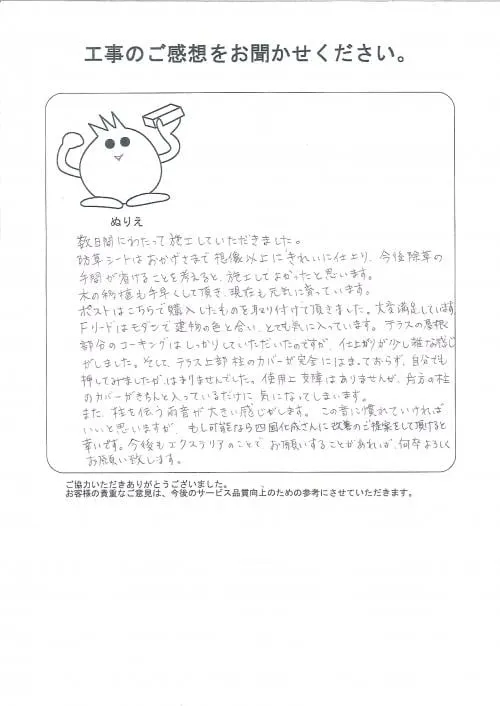 工事のご感想をお聞かせください。
ぬりえ
数日間にわたって施工していただきました。
防草シートはおかげさまで想像以上にきれいに仕上り、今後除草の
手間が省けることを考えると、施工してよかったと思います。
木の移植も手早くして頂き、現在も元気に育っています。
ポストはこちらで購入したものを取り付けて頂きました。大変満足しています。
Fリードはモダンで建物の色と合い、とても気に入っています。テラスの屋根
部分のコーキングはしっかりしていただいたのですが、仕上がりが少し雑な感じ
がしました。そして、テラス上部柱のカバーが完全にはまっておらず、自分でも
押してみましたがはまりませんでした。使用上支障はありませんが、片方の柱
のカバーがきちんと入っているだけに気になってしまいます。
また、柱を伝う雨音が大きい感じがします。この音に慣れていければ
いいと思いますが、もし可能なら四国化成さんに改善のご提案をして頂けると
幸いです。今後もエクステリアのことでお願いすることがあれば、何卒よろしく
お願い致します。
ご協力いただきありがとうございました。
お客様の貴重なご意見は、今後のサービス品質向上のための参考にさせていただきます。